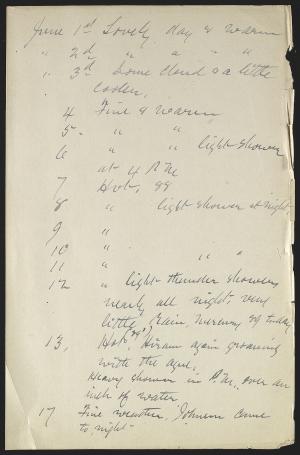 June 1st Lovely day & warm
" 2d " " " "
" 3d Some cloud & a little
cooler.
4 Fine & warm
5 " "
6 " " light shower
at 4 P.M.
7 Hot, 88
8 " light shower at night.
9 "
10 " " "
11 "
12 " light thunder showers
nearly all night, very
little rain, Mercury 89 today
13, Hot, Hiram again groaning
with the ague,
Heavy shower in P.M., over an
inch of water
17 Fine weather, Johnson came
to-night